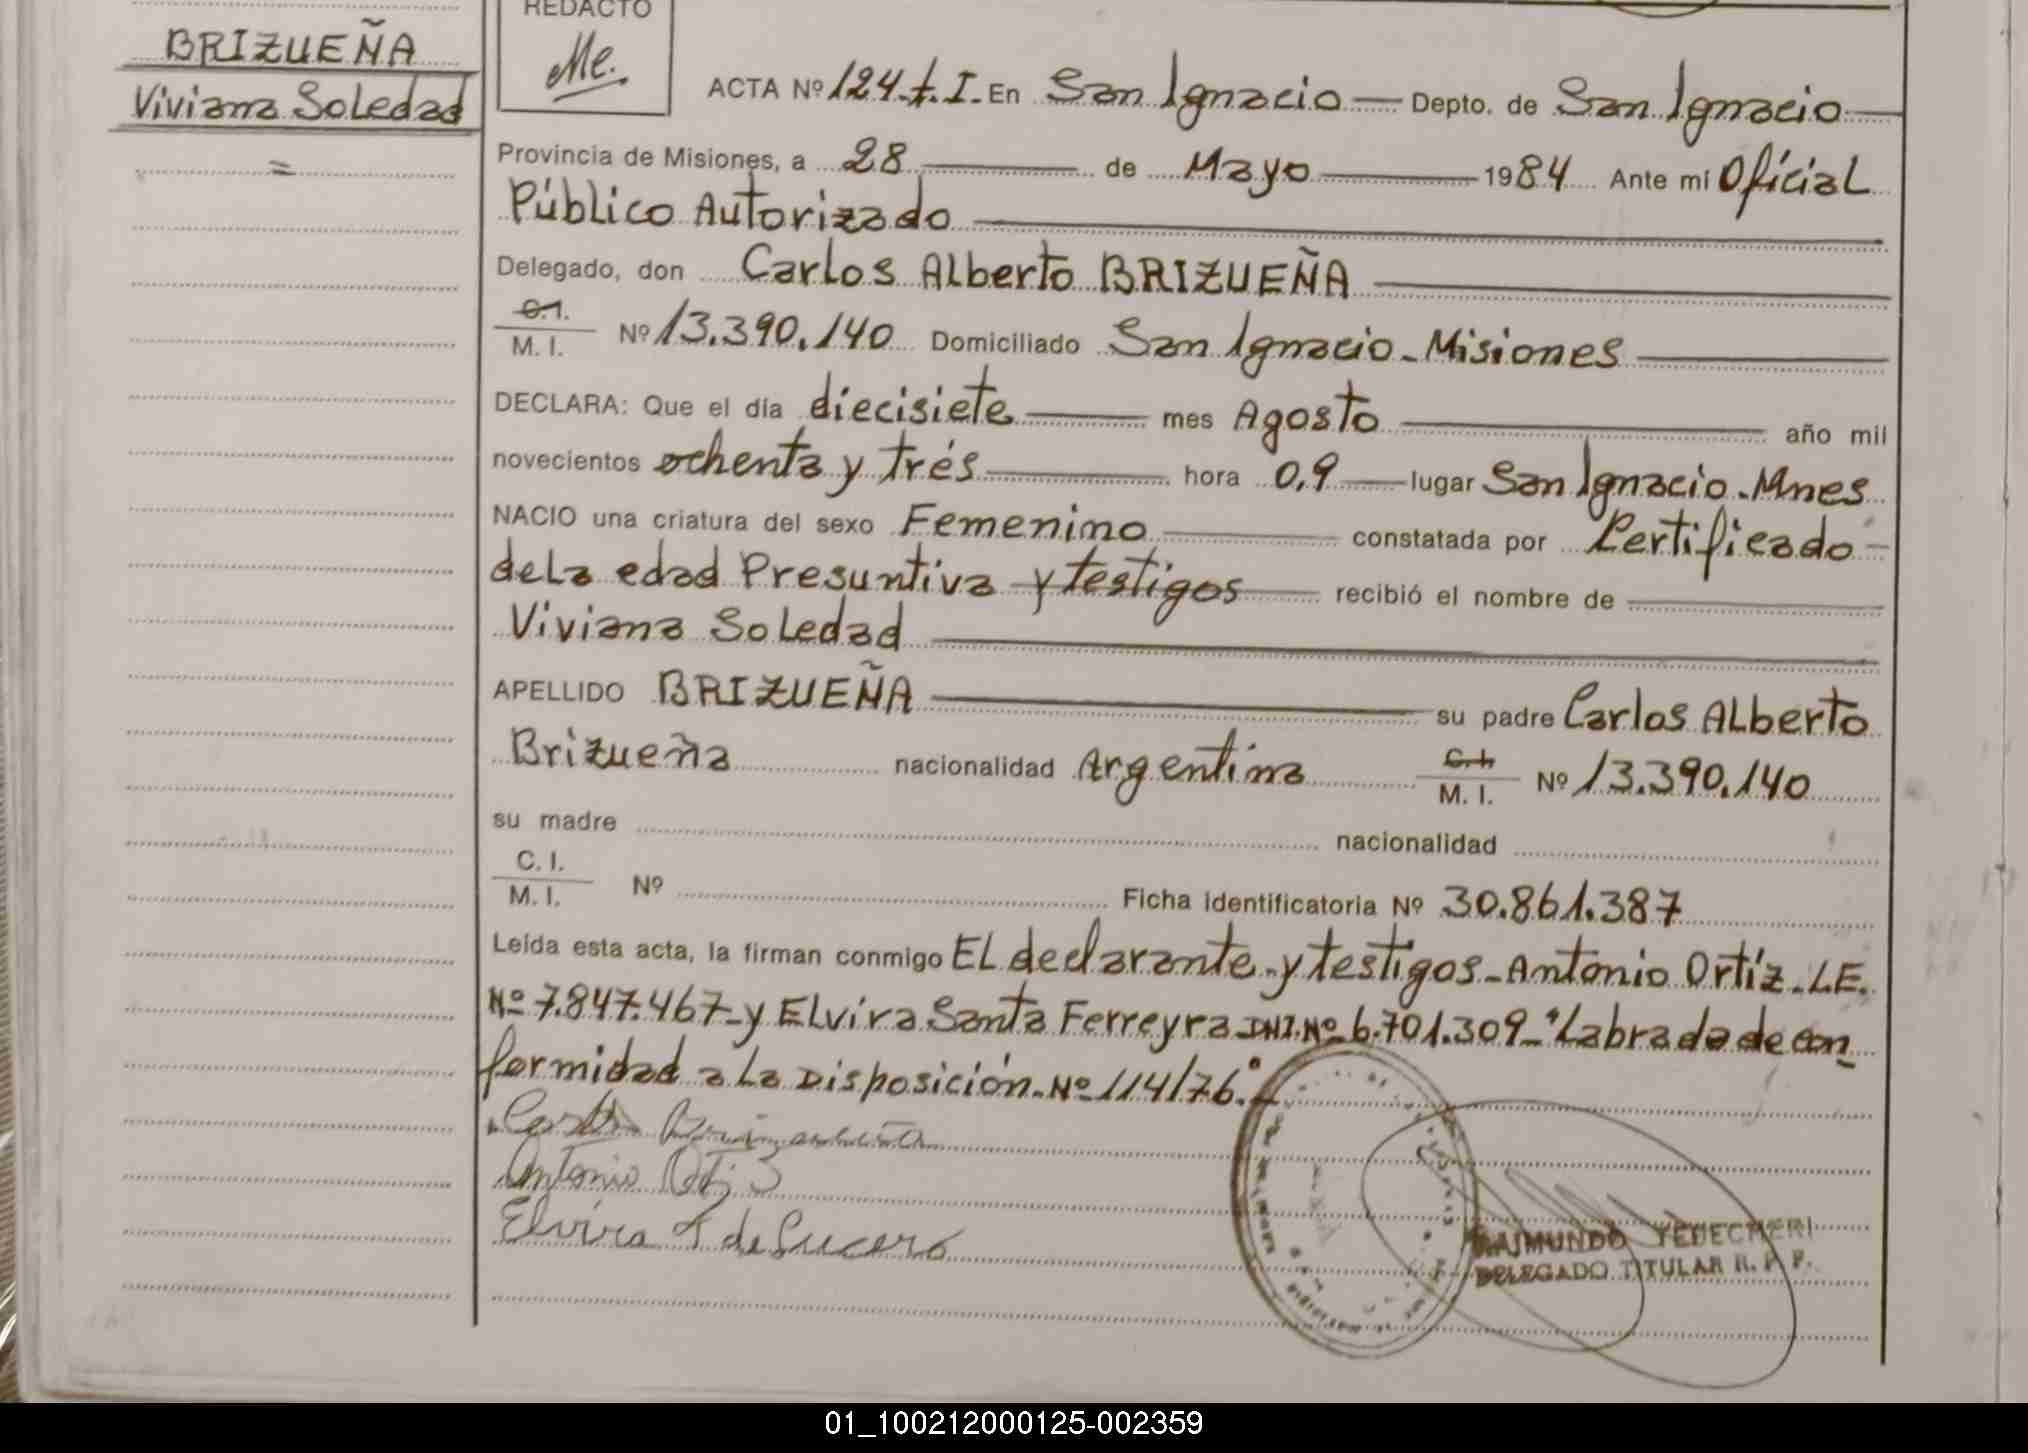 BRIZUEÑA
Viviana Soledad
=
REDACTO
Me.
ACTA Nº 124. t. I. En San Ignacio — Depto. de San Ignacio
Provincia de Misiones, a 28 de Mayo 1984 Ante mí Oficial
Público Autorizado
Delegado, don Carlos Alberto BRIZUEÑA
C.I.
M. I. Nº 13.390.140 Domiciliado San Ignacio - Misiones
DECLARA: Que el día diecisiete mes Agosto año mil
novecientos ochenta y trés hora 0,9 lugar San Ignacio. Mnes
NACIO una criatura del sexo Femenino constatada por Certificado
de la edad Presuntiva y testigos recibió el nombre de
Viviana Soledad
APELLIDO BRIZUEÑA su padre Carlos Alberto
Brizueña nacionalidad Argentina C.I. M. I. Nº 13.390.140
su madre nacionalidad
C. I.
M. I. Nº Ficha identificatoria Nº 30.861.387
Leída esta acta, la firman conmigo El declarante y testigos - Antonio Ortíz - L.E.
Nº 7.847.467 - y Elvira Santa Ferreyra DNI. Nº 6.701.309 - "Labrada de con
formidad a la Disposición. Nº 114/76."
Antonio Ortiz
Elvira F de Lucero
RAIMUNDO YEDECHERI
DELEGADO TITULAR R. P. P.
01_100212000125-002359